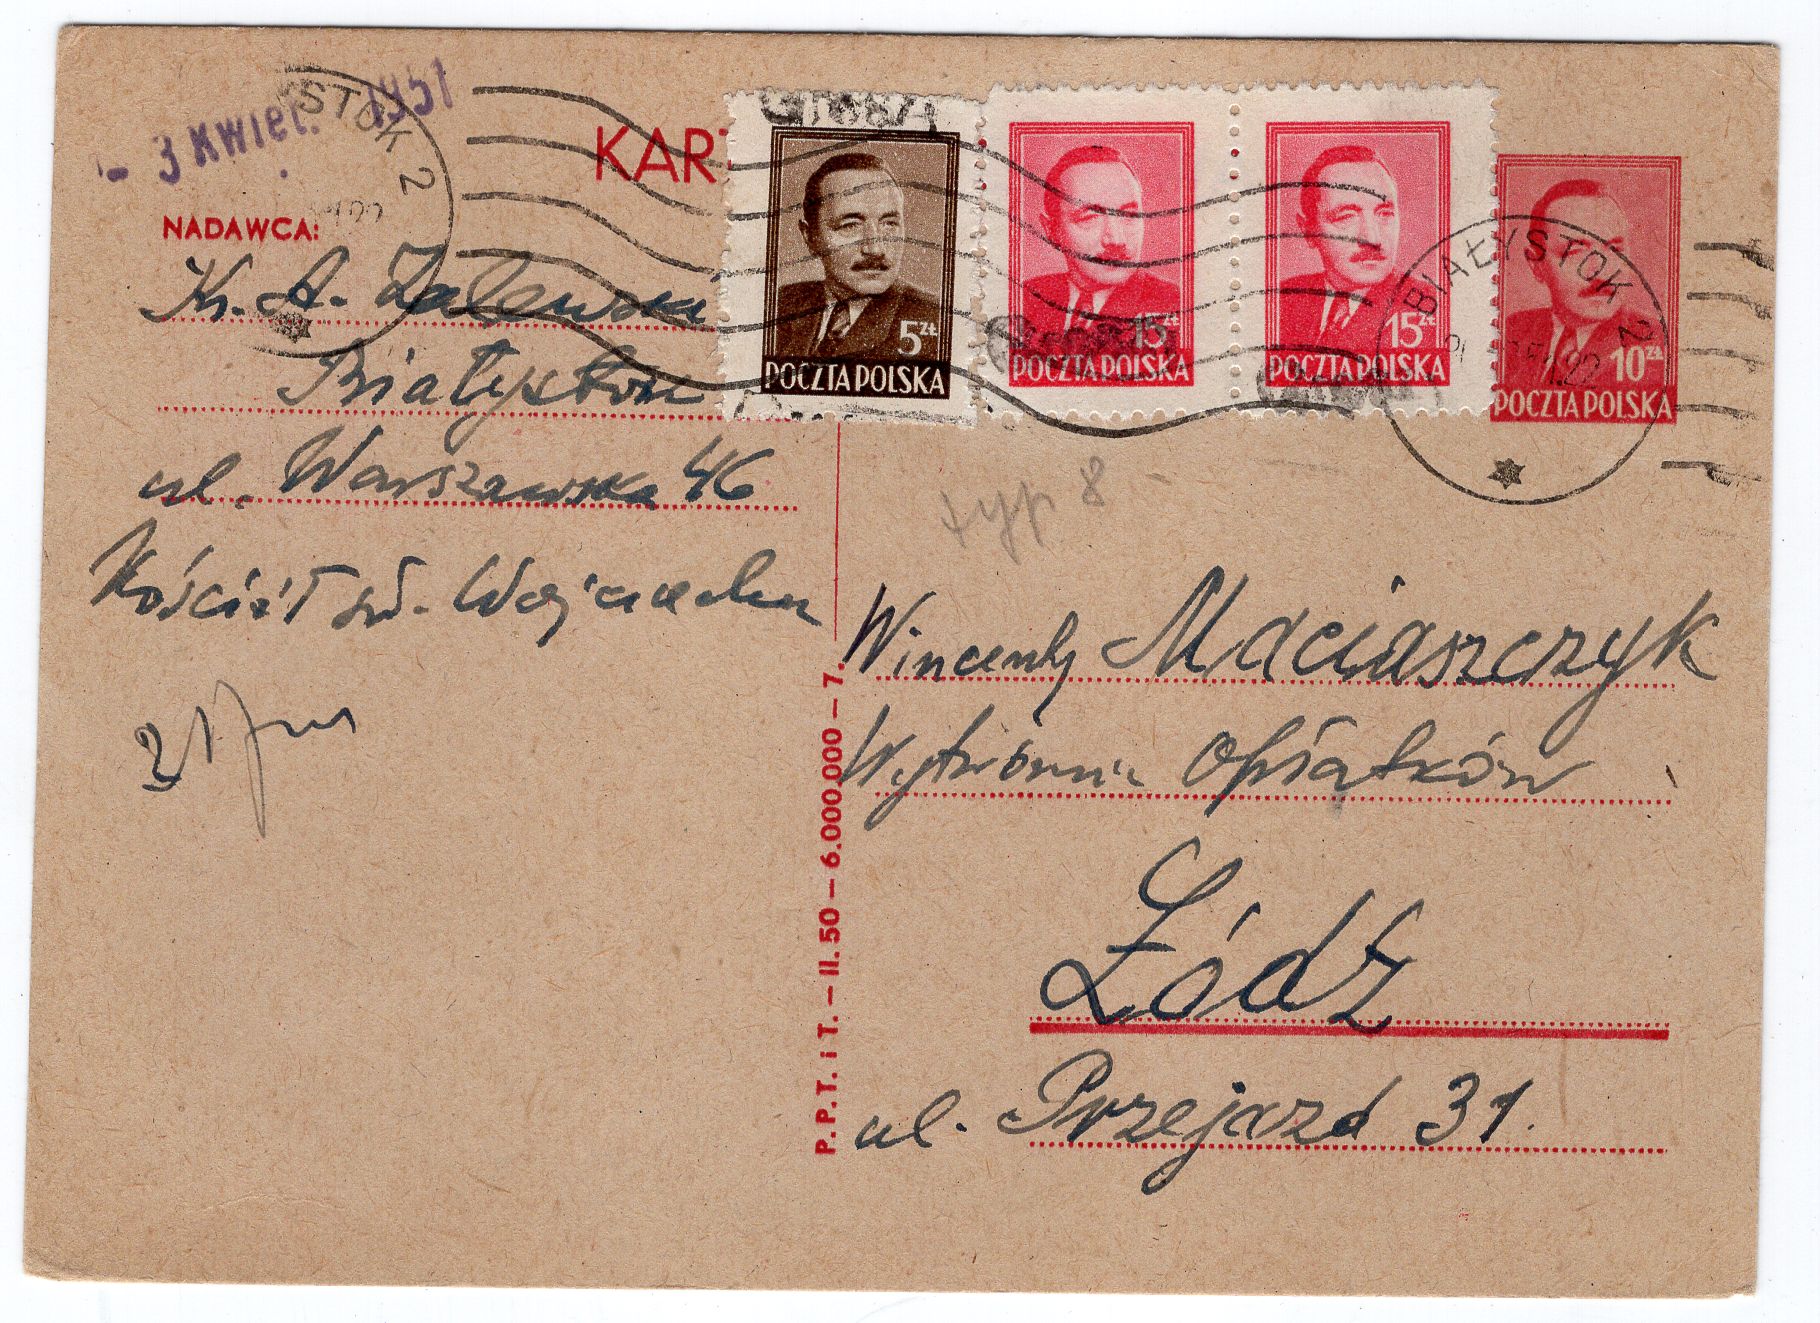 - 3 Kwiet. 1951
STOK 2
KART
NADAWCA:
Ks. A. Zalewski
Białystok
ul. Warszawska 46
Kościół św. Wojciecha
5 ZŁ
POCZTA POLSKA
Groszy
15 ZŁ
POCZTA POLSKA
Groszy
15 ZŁ
POCZTA POLSKA
10 ZŁ
POCZTA POLSKA
BIAŁYSTOK 2
typ 8
Wincenty Maciaszczyk
Wytwórnia Opłatków
Łódź
ul. Przejazd 31.
P.P.T. i T. — II. 50 — 6.000.000 — 7.